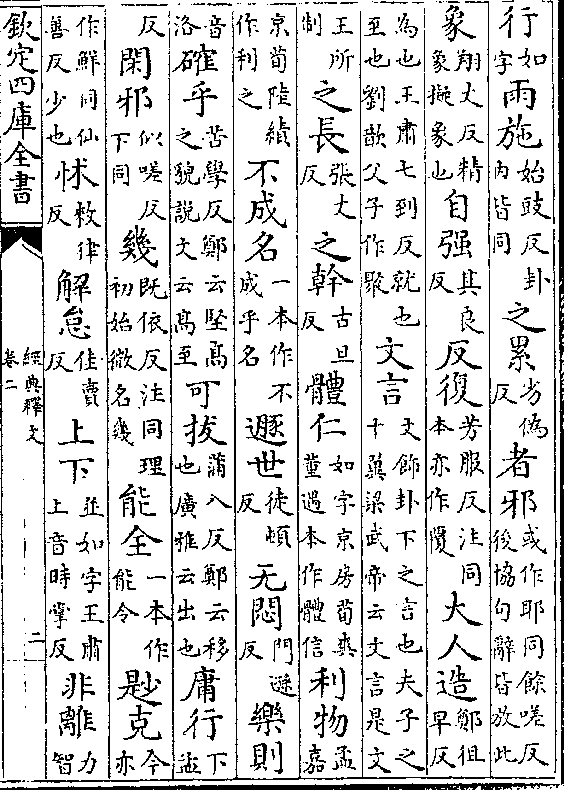 行如字雨施始豉反卦内皆同之累劣偽反者邪或作耶同餘嗟反後協句辭皆放此
象翔丈反精象擬象也自强其良反反復芳服反注同本亦作覆大人造鄭徂早反
為也王肅七到反就也至也劉歆父子作聚文言文飾卦下之言也夫子之十翼梁武帝云文言是文
王所制之長張丈反之幹古旦反體仁如字京房荀爽董遇本作體信利物孟嘉
京荀陸績作利之不成名一本作不成乎名遯世徒頓反无悶門遜反樂則
音洛確乎苦學反鄭云堅高之貌説文云高至可拔蒲八反鄭云移也廣雅云出也庸行下孟
反閑邪似嗟反下同幾既依反注同理初始微名幾能全一本作能令尟克今亦
作鮮同仙善反少也怵敕律反解怠佳賣反上下並如字王肅上音時掌反非離力智
欽定四庫全書
經典釋文
卷二
二